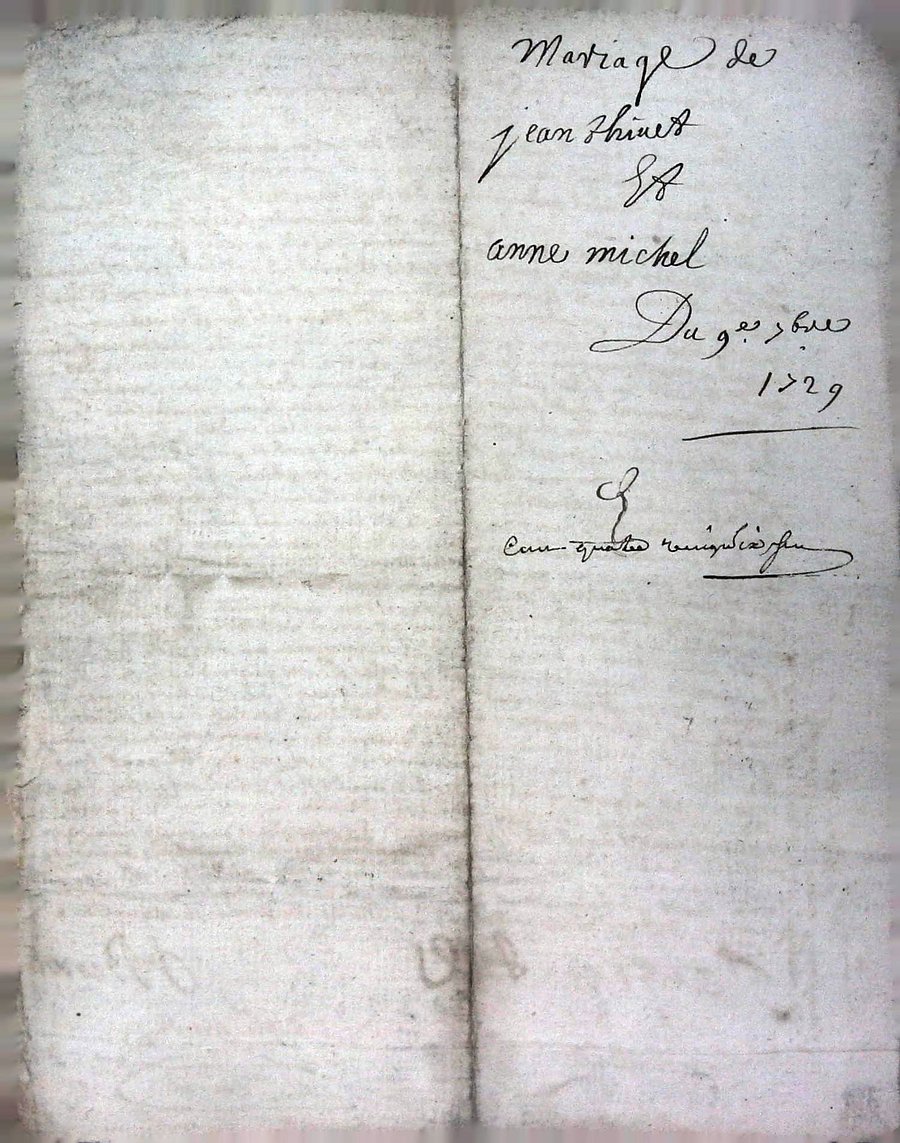 Mariage de
jean thivet
Et
anne michel
Du 9e. 7bre
1729
quatre vingt dix